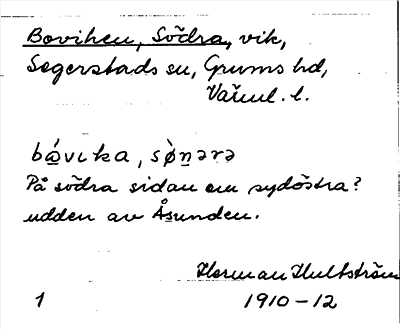 Boviken, Södra, vik,
Segerstads sn, Grums hd,
Värml. l.
bá̱vıka, sø̀n̠ərə
På södra sidan om sydöstra?
udden av Åsunden.
Herman Hultström
1 1910-12